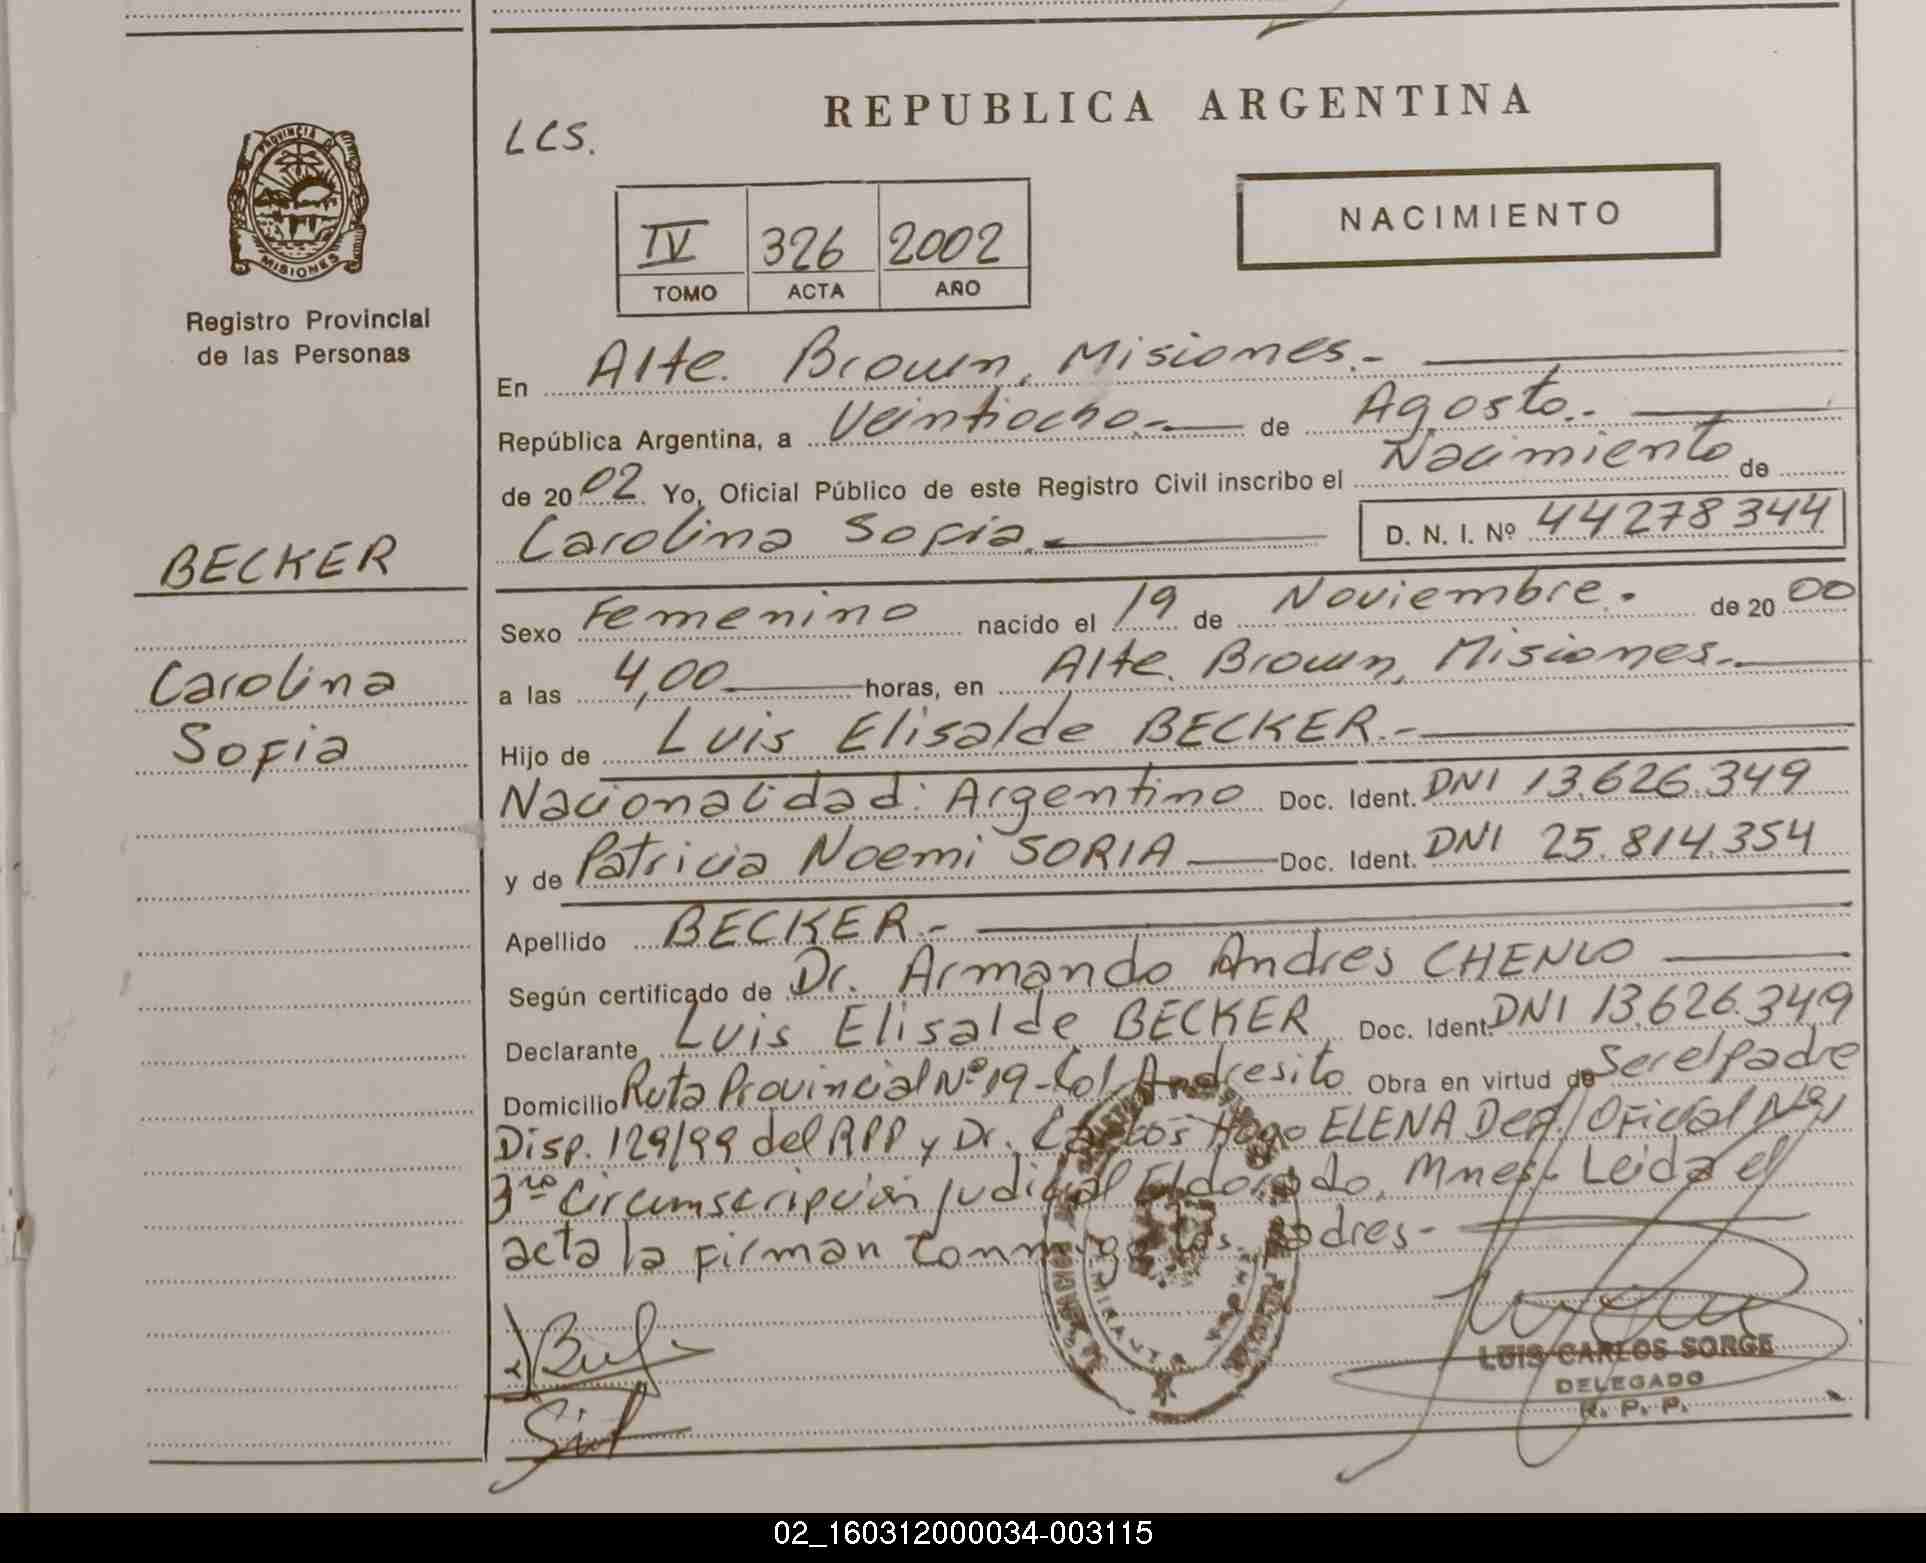 PROVINCIA DE
MISIONES
Registro Provincial
de las Personas
BECKER
Carolina
Sofia
LCS.
REPUBLICA ARGENTINA
IV 326 2002
TOMO ACTA AÑO
NACIMIENTO
En Alte. Brown, Misiones.-
República Argentina, a Veintiocho.- de Agosto.-
de 2002 Yo, Oficial Público de este Registro Civil inscribo el Nacimiento de
Carolina Sofia.- D. N. I. Nº 44278344
Sexo Femenino nacido el 19 de Noviembre. de 2000
a las 4,00 horas, en Alte. Brown, Misiones.-
Hijo de Luis Elisalde BECKER.-
Nacionalidad: Argentino Doc. Ident. DNI 13.626.349
y de Patricia Noemi SORIA Doc. Ident. DNI 25.814.354
Apellido BECKER.-
Según certificado de Dr. Armando Andres CHENLO
Declarante Luis Elisalde BECKER Doc. Ident. DNI 13.626.349
Domicilio Ruta Provincial Nº 19-Col. Andresito Obra en virtud de Ser el padre
Disp. 129/99 del RPP y Dr. Carlos Hugo ELENA Def. Oficial Nº 1
3ra Circumscripción Judicial Eldorado, Mnes.- Leida el
acta la firman conmigo los padres-
LUIS CARLOS SORGE
DELEGADO
R. P. P.
02_160312000034-003115